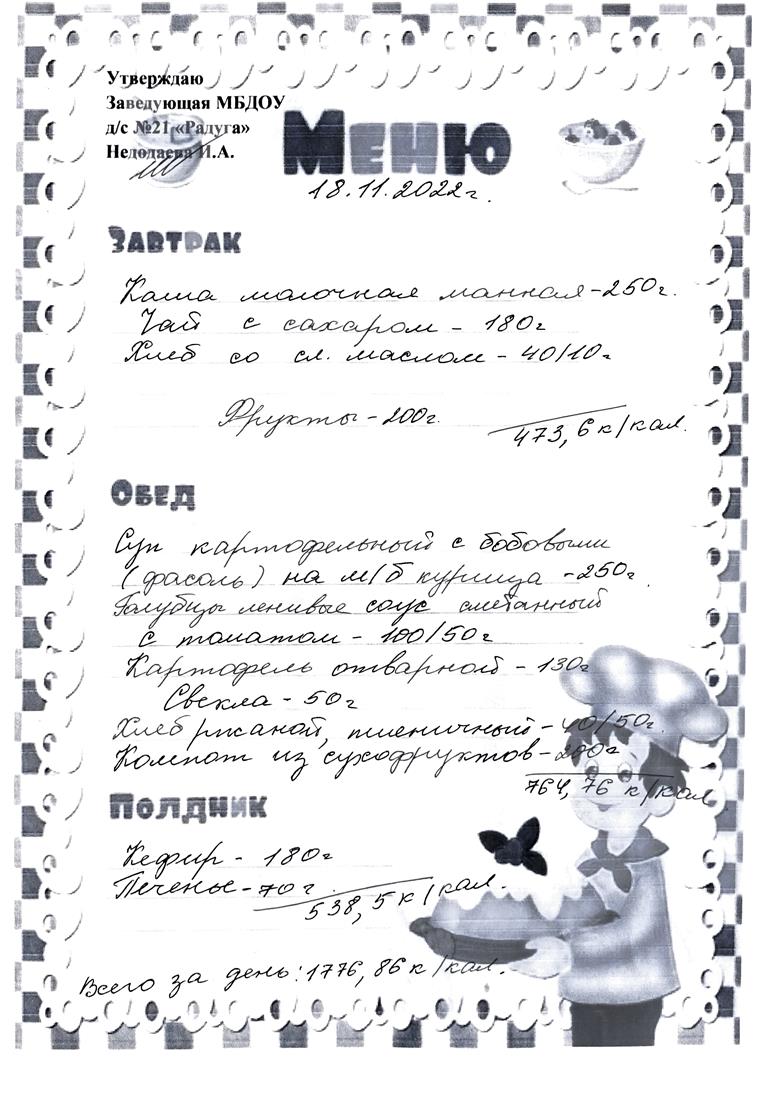 Утверждаю
Заведующая МБДОУ
д/с №21 «Радуга»
Недодаева И.А.
Меню
18.11.2022г.
Завтрак
Каша молочная манная-250г.
Чай с сахаром - 180г
Хлеб со сл. маслом - 40/10г
Фрукты-200г.
473,6 к/кал.
Обед
Суп картофельный с бобовыми
(фасоль) на м/б курица -250г.
Голубцы ленивые соус сметанный
с томатом - 100/50г
Картофель отварной - 130г
Свекла - 50г
Хлеб ржаной, пшеничный-40/50г.
Компот из сухофруктов-200г
764,76 к/кал
Полдник
Кефир - 180г
Печенье-70г.
538,5 к/кал.
Всего за день:1776,86 к/кал.